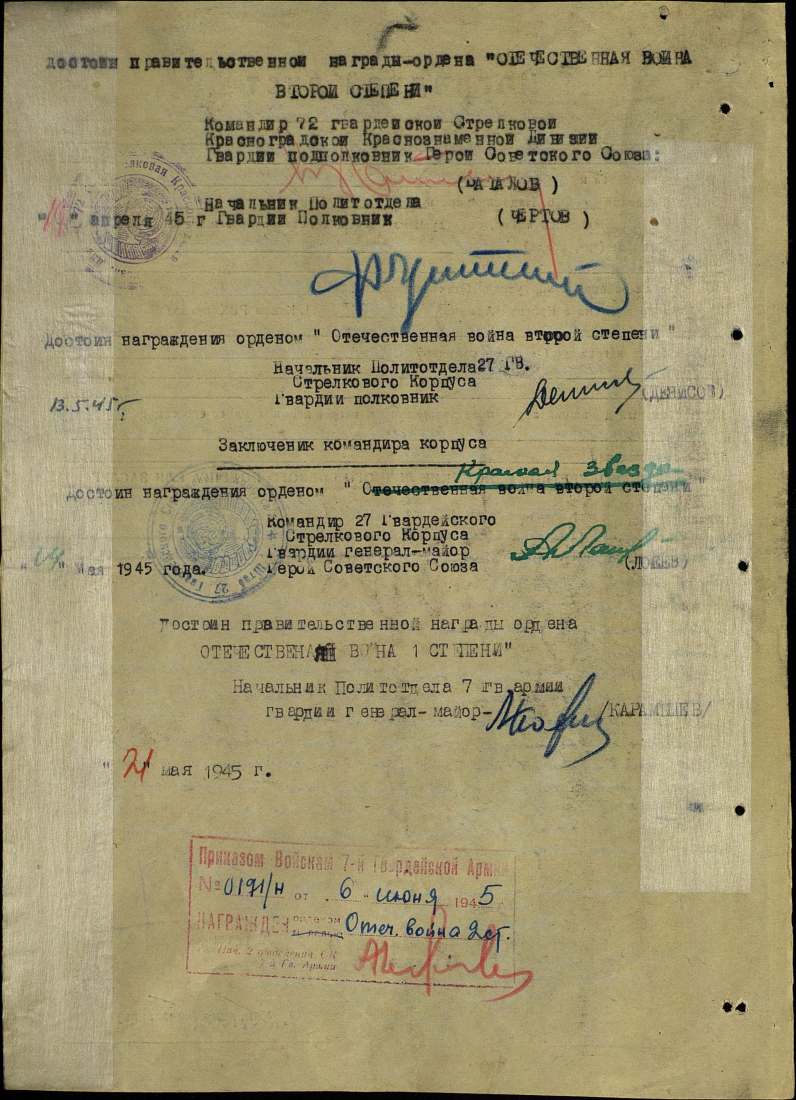 достоин правительственной награды-ордена "ОТЕЧЕСТВЕННАЯ ВОЙНА
ВТОРОЙ СТЕПЕНИ"
Командир 72 гвардейской Стрелковой
Красноградской Краснознаменной Дивизии
Гвардии подполковник Герой Советского Союза:
Начальник Политотдела
" апреля 45 г Гвардии Полковник (ЧЕРТОВ)
Достоин награждения орденом "Отечественная война второй степени"
Начальник Политотдела 27 ГВ.
Стрелкового Корпуса
13.5.45г. Гвардии полковник (ДЕНИСОВ)
Заключеник командира корпуса
Красная Звезда
Достоин награждения орденом "Отечественная война второй степени"
Командир 27 Гвардейского
Стрелкового Корпуса
Гвардии генерал-майор
" мая 1945 года. Герой Советского Союза
Достоин правительственной награды ордена
ВОЙНА 1 СТЕПЕНИ"
Начальник Политотдела 7 гв.армии
гвардии генерал-майор-
"21" мая 1945 г.
Приказом Войскам 7-й Гвардейской Армии
№ 0191/н от 6 июня 1945
НАГРАЖДЕН орденом Отеч. война 2 ст.